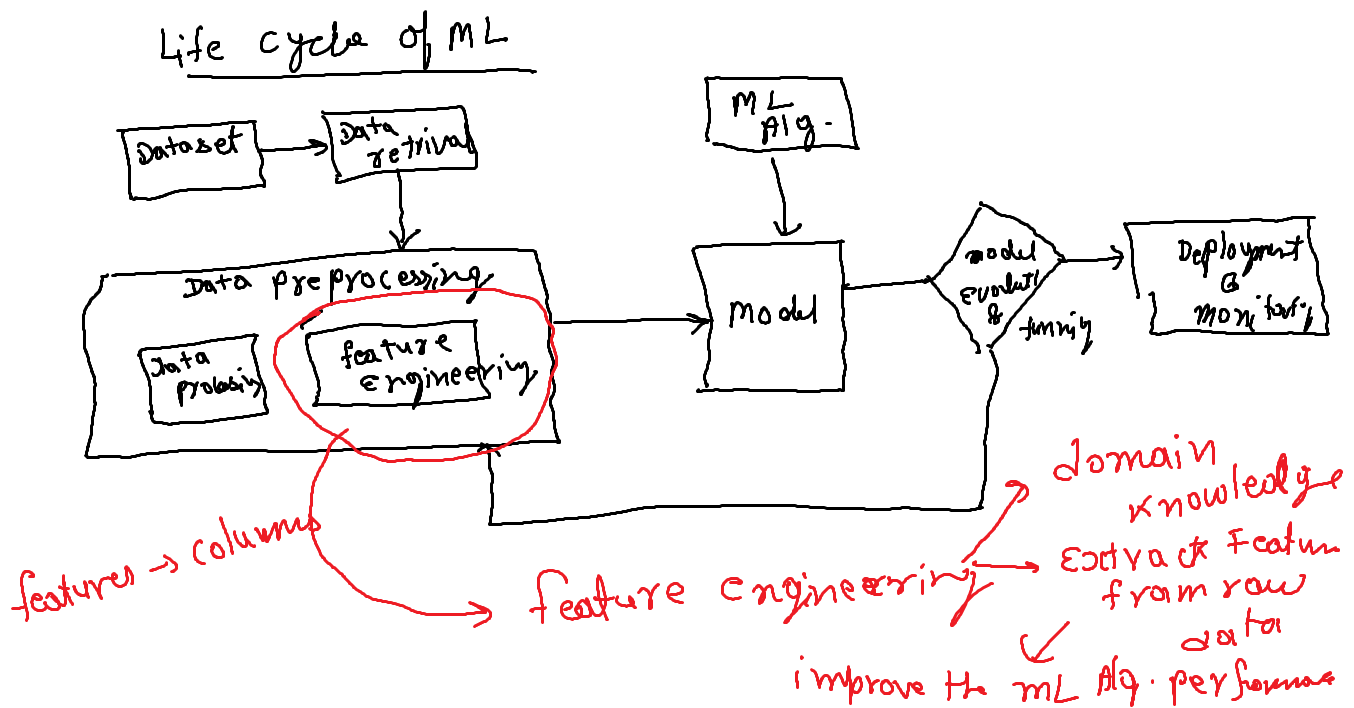 Life cycle of ML
Dataset
Data
retrival
ML
Alg.
Data preprocessing
Data
feature
engineering
Model
model
&
Deployment
&
features → columns
feature engineering
domain
knowledge
Extract Feature
from row
data
improve the ML Alg. performance